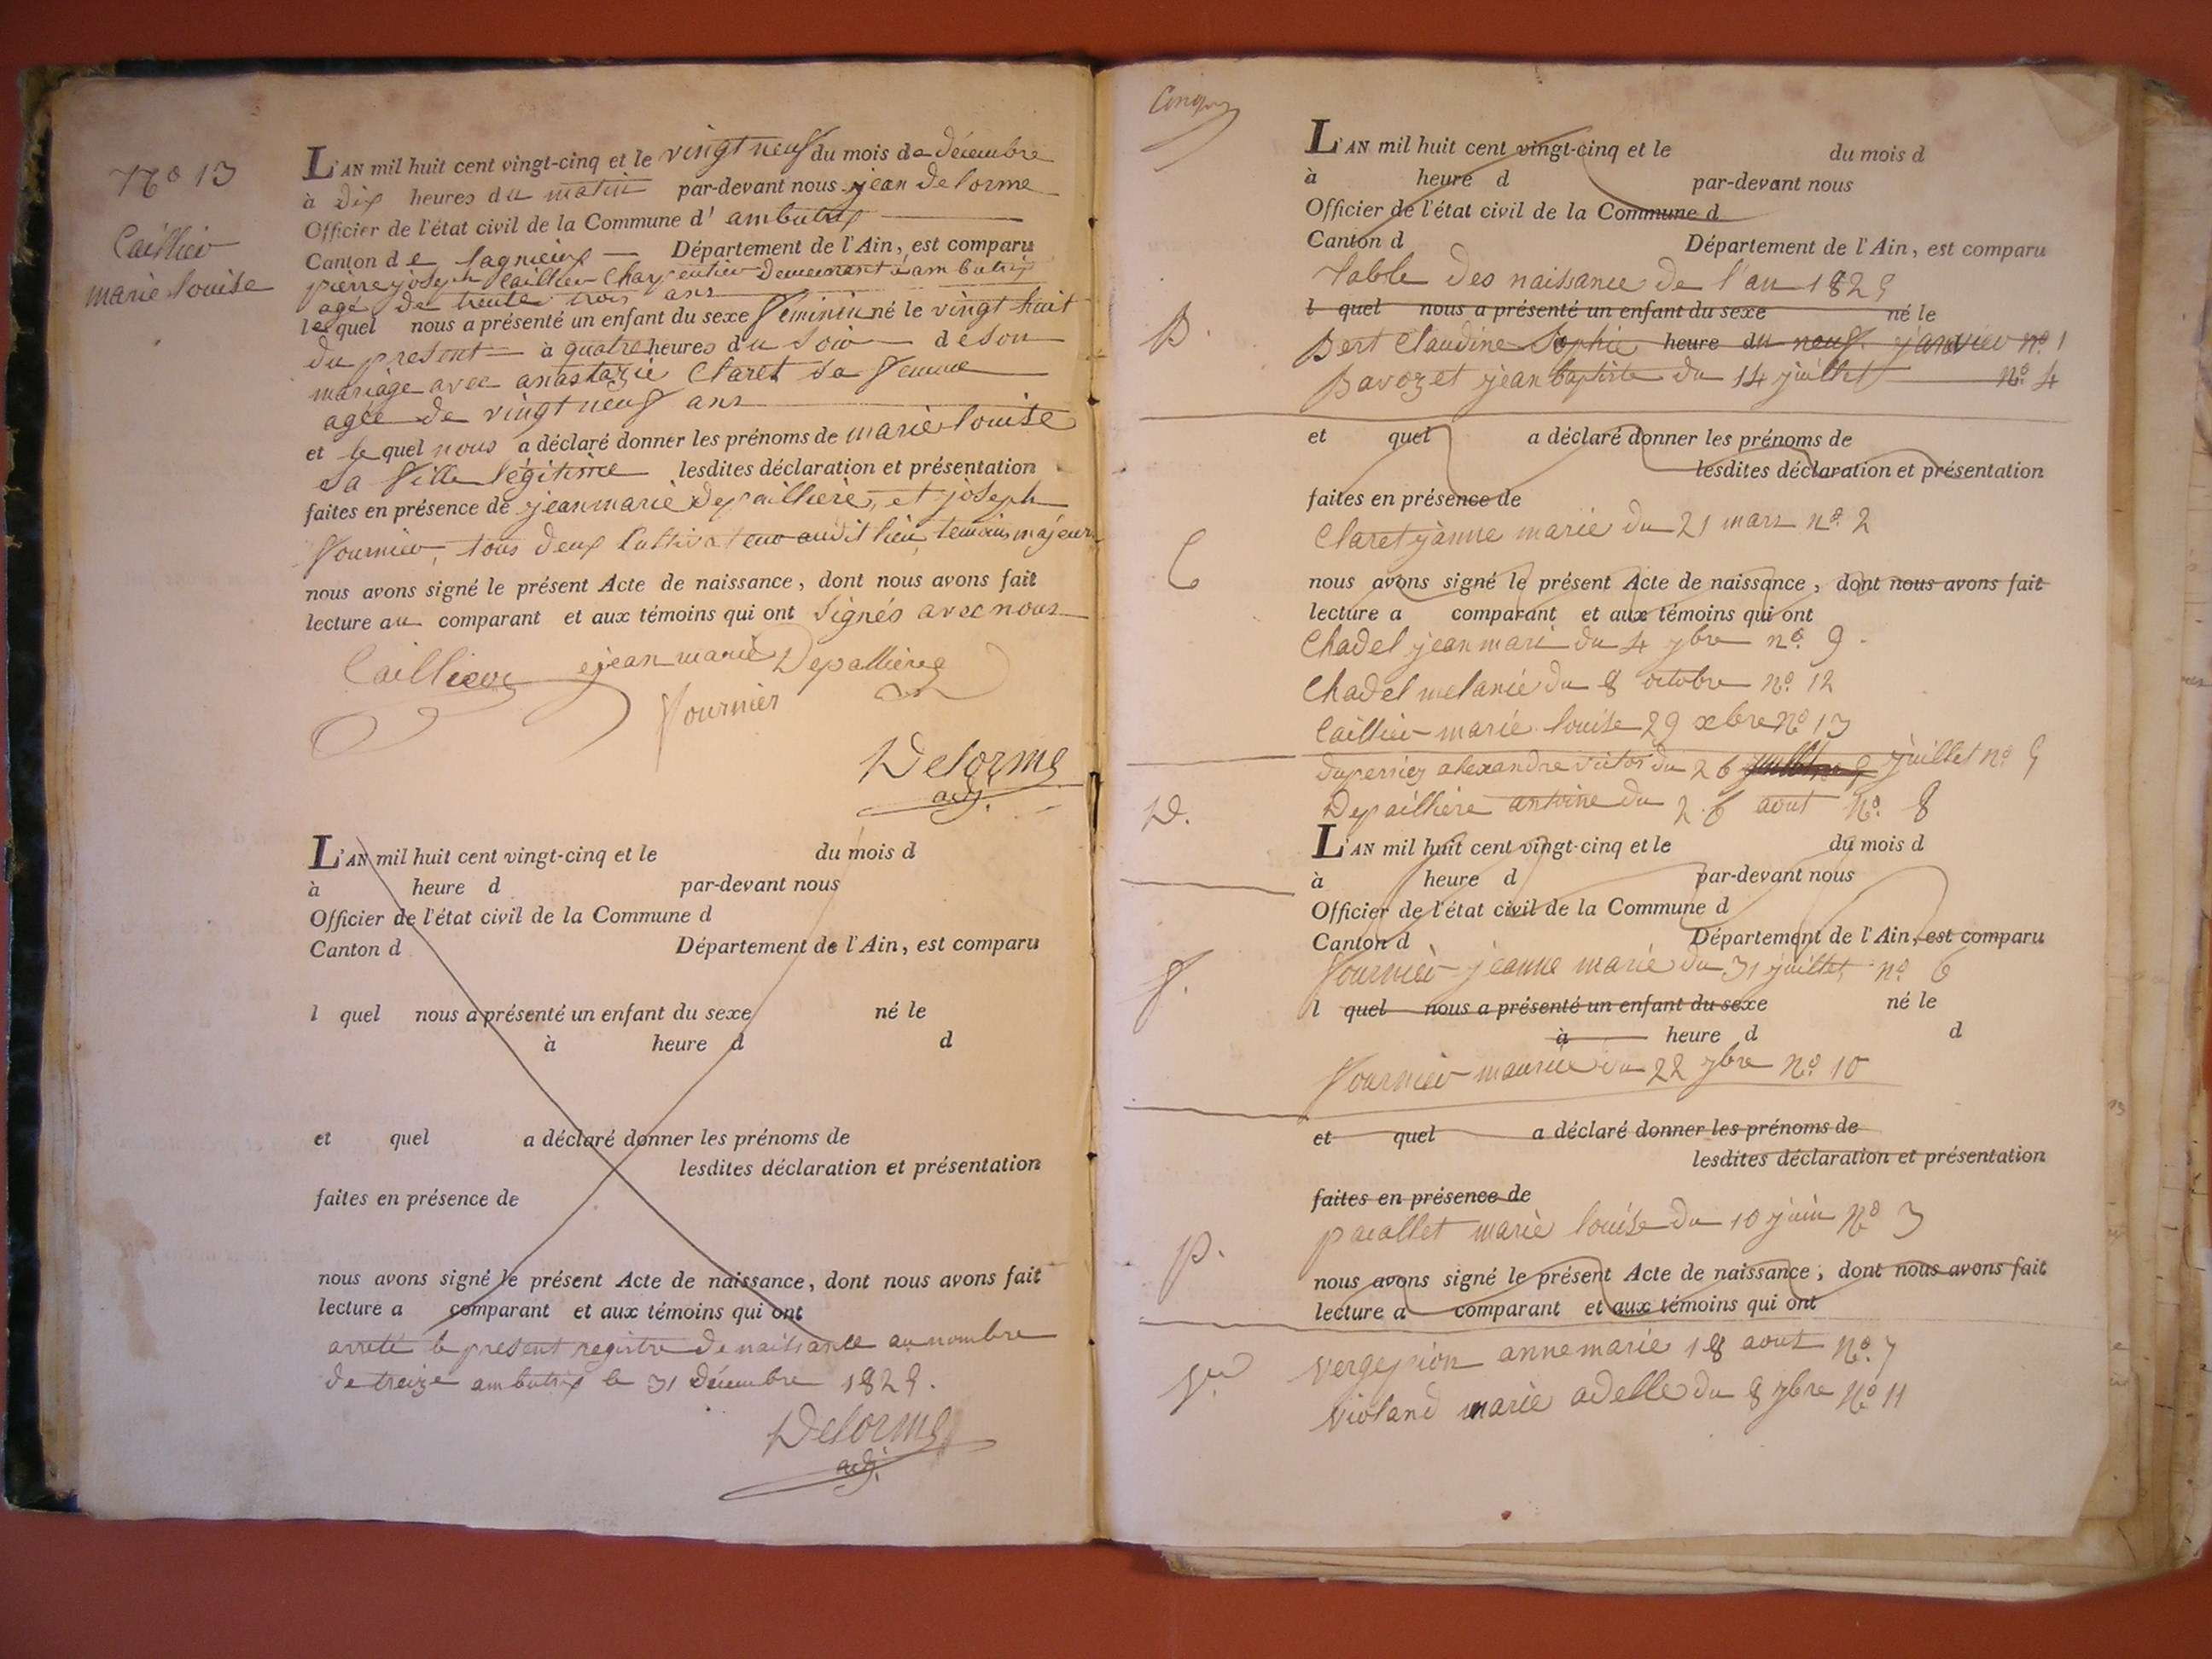 N.o 13
Caillier
marie louise
L'AN mil huit cent vingt-cinq et le vingt neuf du mois de décembre
à dix heures du matin par-devant nous jean delorme
Officier de l'état civil de la Commune d' ambutrix
Canton de lagnieux Département de l'Ain, est comparu
pierre joseph Caillier Charpentier demeurant à ambutrix
agé de trente trois ans
lequel nous a présenté un enfant du sexe féminin né le vingt huit
du present à quatre heures du soir de son
mariage avec anastazie Claret sa femme
agée de vingt neuf ans
et le quel nous a déclaré donner les prénoms de marie louise
sa fille légitime lesdites déclaration et présentation
faites en présence de jean marie depaillière, et joseph
fournier, tous deux Cultivateur audit lieu, temoins majeurs
nous avons signé le présent Acte de naissance, dont nous avons fait
lecture au comparant et aux témoins qui ont signés avec nous
Caillier jean marie Depallière
fournier
Delorme
adj.
L'AN mil huit cent vingt-cinq et le du mois d
à heure d par-devant nous
Officier de l'état civil de la Commune d
Canton d Département de l'Ain, est comparu
l quel nous a présenté un enfant du sexe né le
à heure d d
et quel a déclaré donner les prénoms de
lesdites déclaration et présentation
faites en présence de
nous avons signé le présent Acte de naissance, dont nous avons fait
lecture a comparant et aux témoins qui ont
arreté le present registre de naissance au nombre
de treize ambutrix le 31 décembre 1825.
Delorme
adj.
L'AN mil huit cent vingt-cinq et le du mois d
à heure d par-devant nous
Officier de l'état civil de la Commune d
Canton d Département de l'Ain, est comparu
table des naissance de l'an 1825
l quel nous a présenté un enfant du sexe né le
B. Bert Claudine Sophie heure du neuf janvier n.o 1
Bavozet jean baptiste du 14 juillet n.o 4
et quel a déclaré donner les prénoms de
lesdites déclaration et présentation
faites en présence de
Claret janne marie du 21 mars n.o 2
C
nous avons signé le présent Acte de naissance, dont nous avons fait
lecture a comparant et aux témoins qui ont
Chadel jean mari du 4 7bre n.o 9
Chadel melanie du 8 octobre n.o 12
Caillier marie louise 29 xbre n.o 13
duperriez alexandre victor du 26 juillet n.o 5
D. Depaillière antoine du 26 aout n.o 8
L'AN mil huit cent vingt-cinq et le du mois d
à heure d par-devant nous
Officier de l'état civil de la Commune d
Canton d Département de l'Ain, est comparu
f. fournier jeanne marie du 31 juillet n.o 6
l quel nous a présenté un enfant du sexe né le
à heure d d
fournier maurice du 22 7bre n.o 10
et quel a déclaré donner les prénoms de
lesdites déclaration et présentation
faites en présence de
pacallet marie louise du 10 juin n.o 3
p.
nous avons signé le présent Acte de naissance, dont nous avons fait
lecture a comparant et aux témoins qui ont
vergepion anne marie 18 aout n.o 7
violand marie adelle du 8 7bre n.o 11